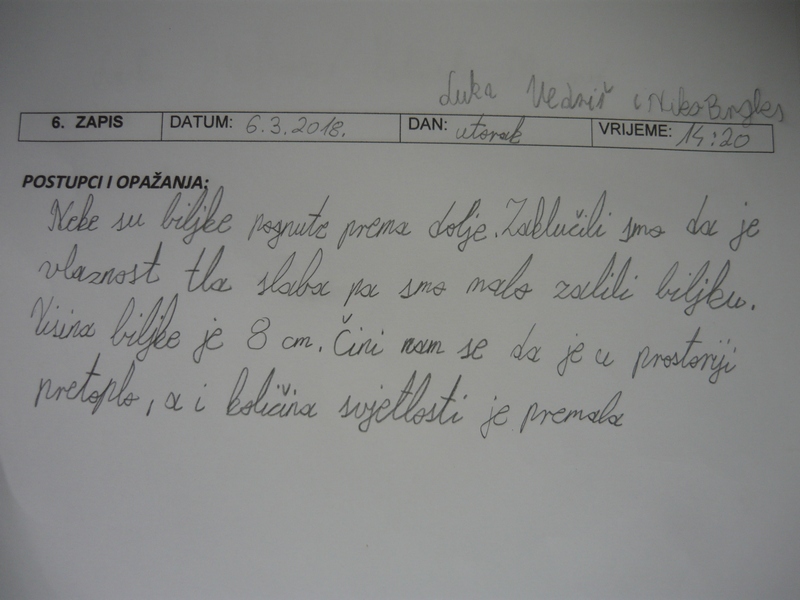 Luka Vedriš i Niko
6. ZAPIS DATUM: 6.3.2018. DAN: utorak VRIJEME: 14:20
POSTUPCI I OPAŽANJA:
Neke su biljke pognute prema dolje. Zaključili smo da je
vlaznost tla slaba pa smo malo zalili biljku.
Visina biljke je 8 cm. Čini nam se da je u prostoriji
pretoplo, a i količina svjetlosti je premala